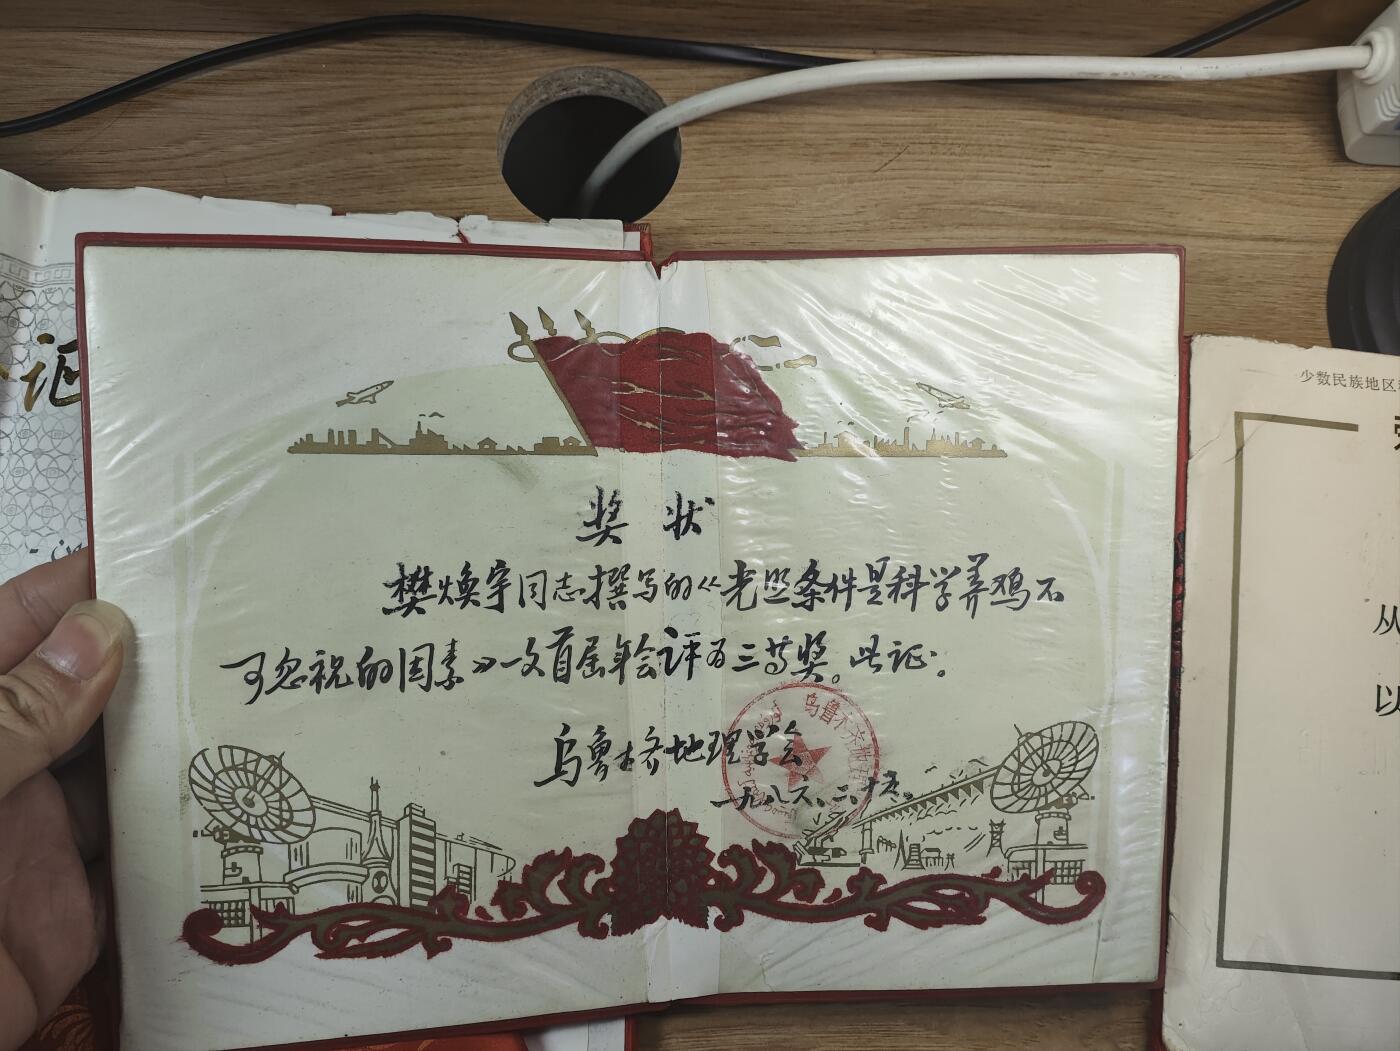 证
奖状
樊焕宇同志撰写的《光照条件是科学养鸡不
可忽视的因素》一文首届年会评为三等奖。此证.
乌鲁木齐地理学会
一九八六、二、十五、
乌鲁木齐地理
少数民族地区
从
以